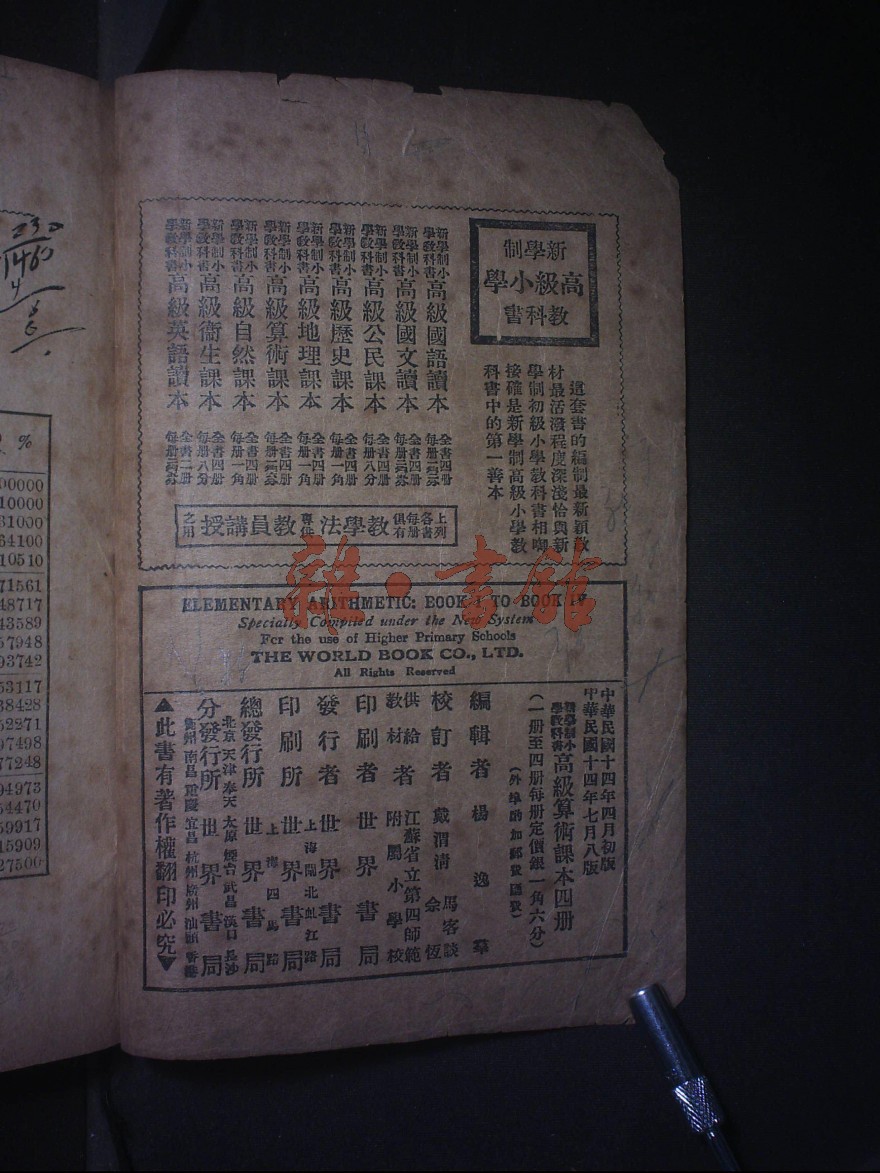 新學制
高級小學
教科書
這套書的編制最新穎教
材最活潑程度深淺恰與新
學制初級小學教科書相啣
接確是新學制高級小學教
科書中的第一善本
新學制小學教科書高級國語讀本 全書四册
新學制小學教科書高級國文讀本 全書四册
新學制小學教科書高級公民課本 全書四册每册八分
新學制小學教科書高級歷史課本 全書四册每册一角
新學制小學教科書高級地理課本 全書四册每册一角
新學制小學教科書高級算術課本 全書四册
新學制小學教科書高級自然課本 全書四册每册一角
新學制小學教科書高級衞生課本 全書四册每册八分
新學制小學教科書高級英語讀本 全書二册
上列各書每册俱有教學法專供教員講授之用
雜·書館
ELEMENTARY ARITHMETIC: BOOK I TO BOOK IV
Specially Compiled under the New System
For the use of Higher Primary Schools
THE WORLD BOOK CO., LTD.
All Rights Reserved
中華民國十四年四月初版
中華民國十四年七月八版
新學制小學教科書高級算術課本四册
(一册至四册每册定價銀一角六分)
(外埠酌加郵費匯費)
編輯者 楊逸羣
校訂者 戴渭清 馬客談 余恆
供給教材者 江蘇省立第四師範附屬小學校
印刷者 世界書局
發行者 世界書局
印刷所 上海閘北虬江路 世界書局
總發行所 上海四馬路 世界書局
分發行所 北京 天津 奉天 太原 煙台 武昌 漢口 長沙 衢州 南昌 重慶 宜昌 杭州 廣州 汕頭 香港 世界書局
▲此書有著作權翻印必究▼
230
1460
%
00000
10000
31000
64100
10510
71561
48717
43589
57948
93742
53117
38428
52271
97498
77248
94973
54470
59917
15909
27500